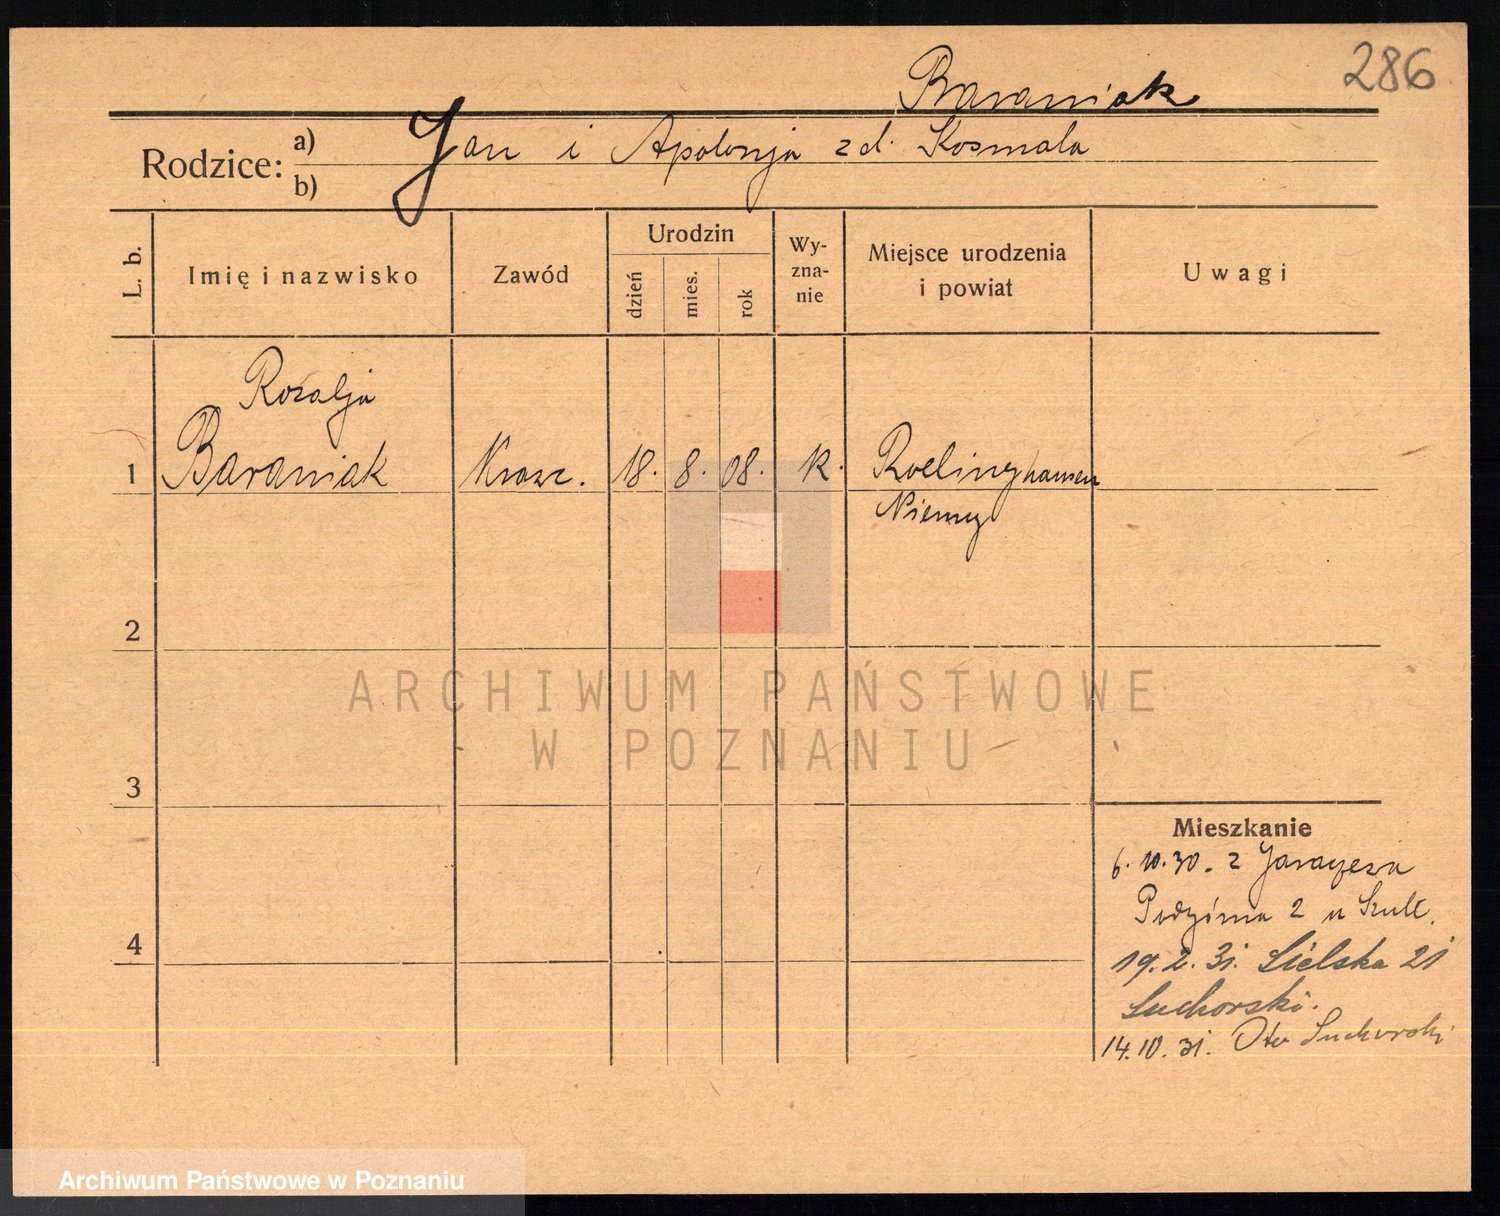 286
Baraniak
Rodzice: a) Jan i Apolonja z d. Kosmala
b)
L. b.
Imię i nazwisko
Zawód
Urodzin
dzień
mies.
rok
Wy-
zna-
nie
Miejsce urodzenia
i powiat
Uwagi
Rozalja
1 Baraniak Krawc. 18. 8. 08. K. Roelinghausen
Niemcy
2
3
4
Mieszkanie
6. 10. 30. z Jaraczewa
Podgórna 2 u Szult.
19. 2. 31. Sielska 21
Suchorski.
14. 10. 31. Suchorski
ARCHIWUM PAŃSTWOWE
W POZNANIU
Archiwum Państwowe w Poznaniu